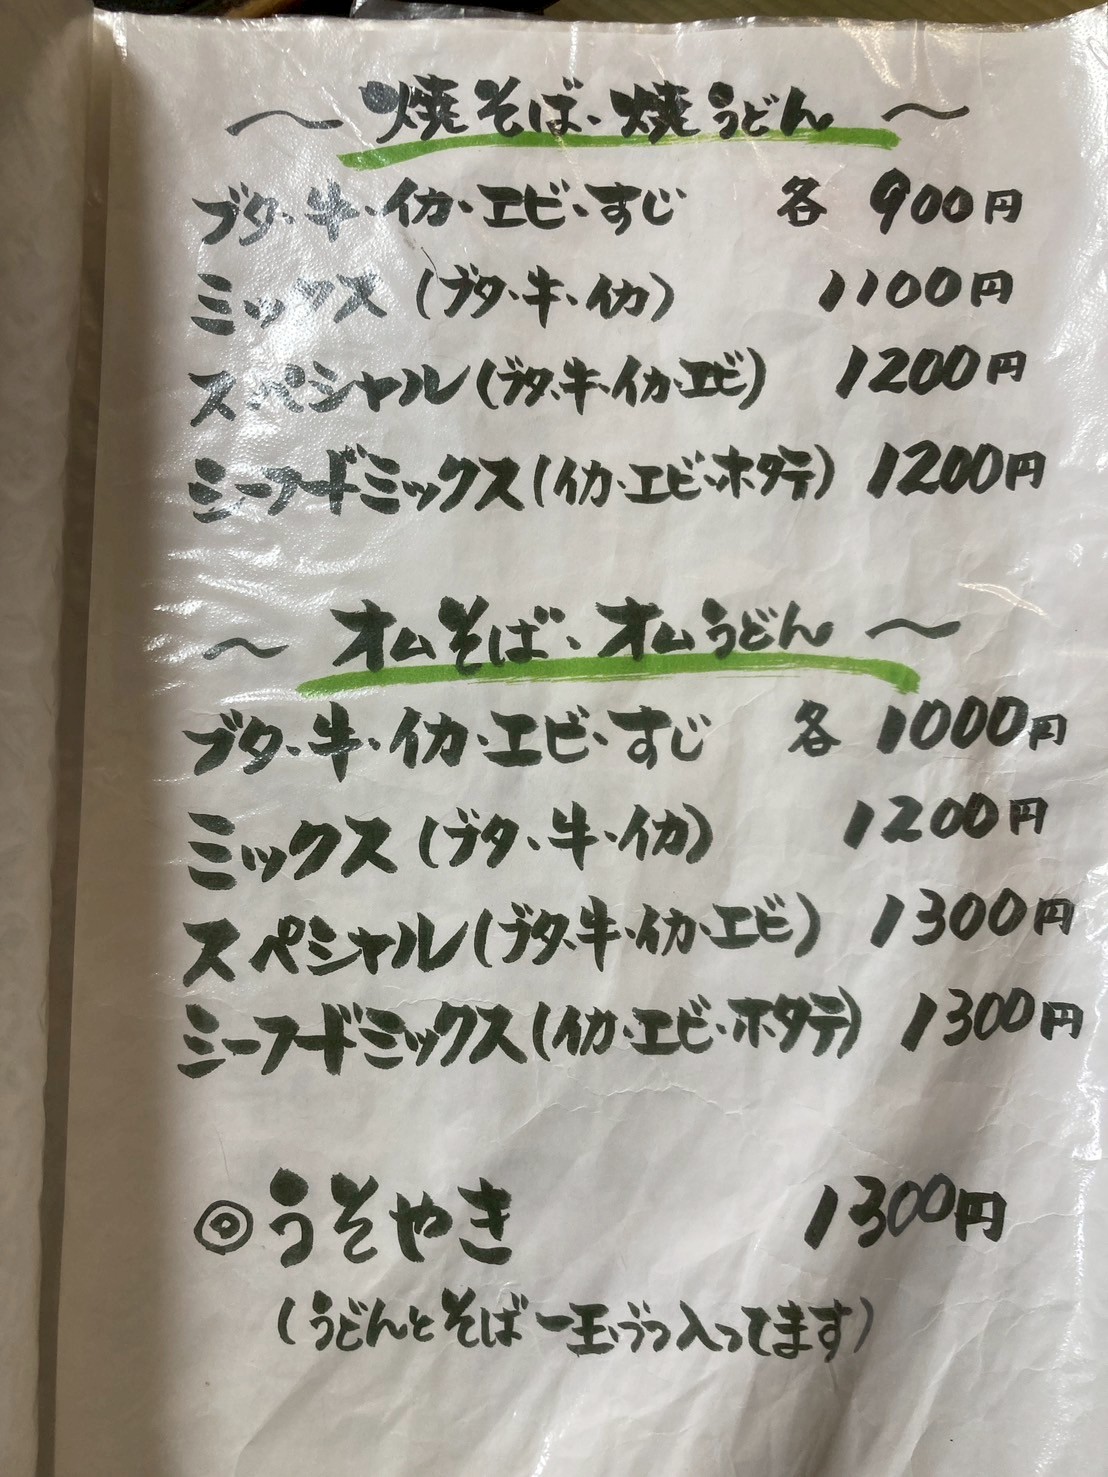 ～ 焼そば、焼うどん ～
ブタ・牛・イカ・エビ・すじ 各 900円
ミックス (ブタ・牛・イカ) 1100円
スペシャル (ブタ・牛・イカ・エビ) 1200円
シーフードミックス (イカ・エビ・ホタテ) 1200円
～ オムそば、オムうどん ～
ブタ・牛・イカ・エビ・すじ 各 1000円
ミックス (ブタ・牛・イカ) 1200円
スペシャル (ブタ・牛・イカ・エビ) 1300円
シーフードミックス (イカ・エビ・ホタテ) 1300円
◎うそやき 1300円
(うどんとそば一玉づつ入ってます)